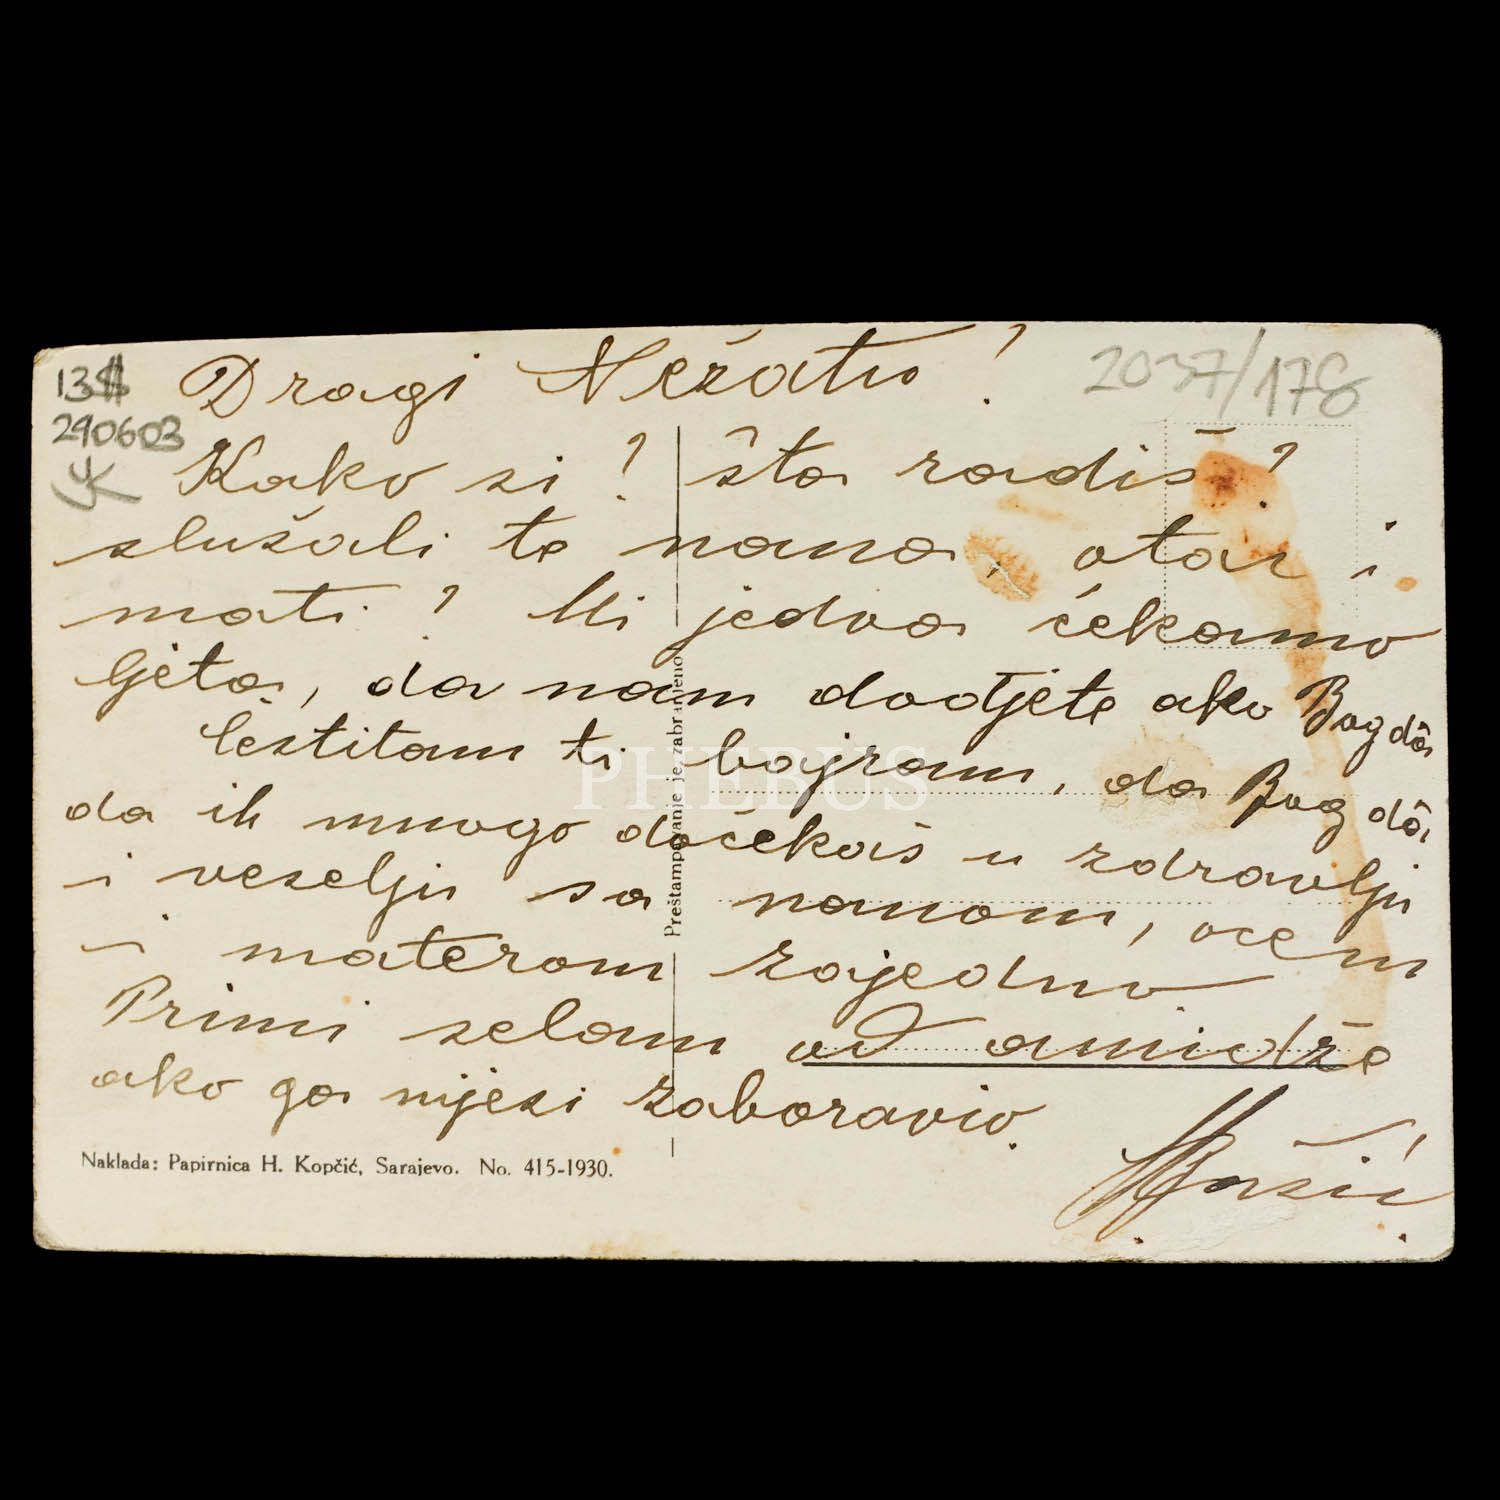 13$
290603
2037/178
Dragi Nežatu!
Kako si? Šta radiš?
slušali te nana, otac i
mati? Mi jedva čekamo
ljeta, da nam dodjete ako Bog dâ.
Čestitam ti bajram, da Bog dâ,
da ih mnogo dočekaš u zdravlju
i veselju sa nanom, ocem
i materom zajedno.
Primi selam od amidže
ako ga nijesi zaboravio.
Naklada: Papirnica H. Kopčić, Sarajevo. No. 415-1930.
Preštampavanje je zabranjeno
PHEBUS